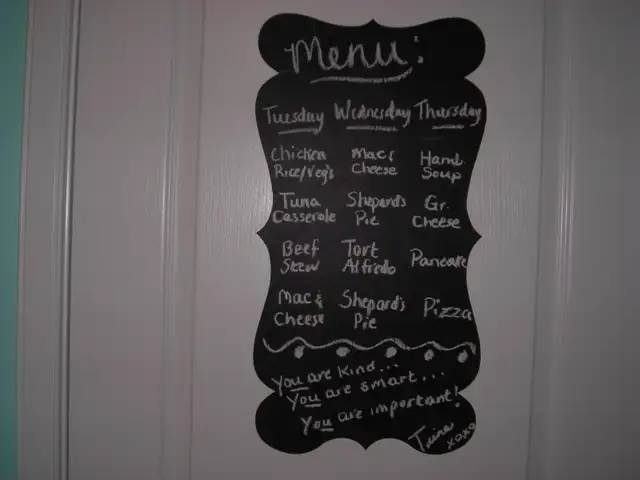 Menu:
Tuesday Wednesday Thursday
Chicken Mac & Hamb.
Rice/Veg's Cheese Soup
Tuna Shepard's Gr.
Casserole Pie Cheese
Beef Tort
Stew Alfredo Pancake
Mac & Shepard's Pizza
Cheese Pie
You are kind...
You are smart...
You are important!
Trina
xoxo